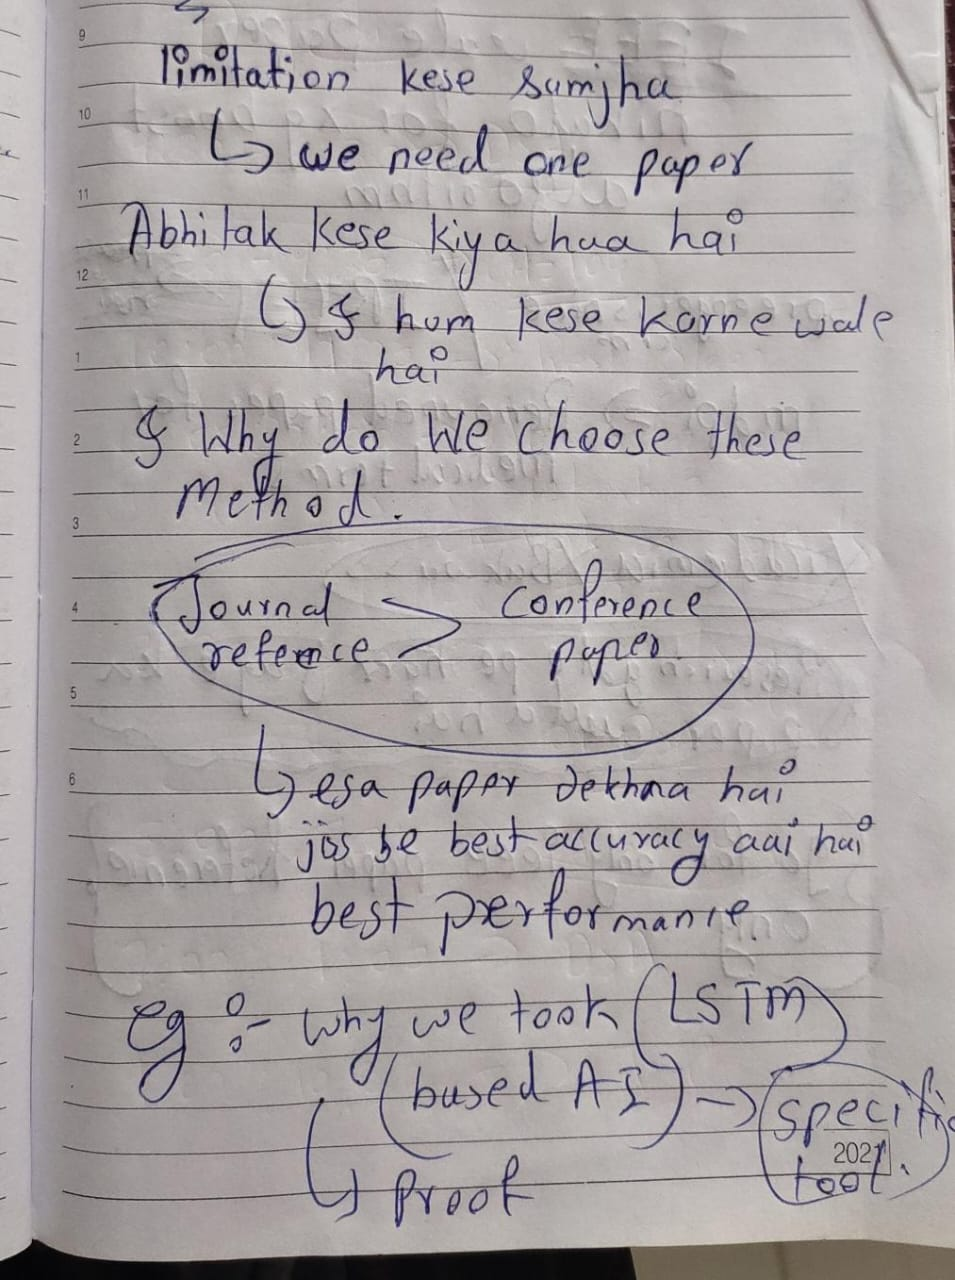 9
limitation kese sumjha
10
↳ we need one paper
11
Abhi tak kese kiya hua hai
12
↳ & hum kese karne wale
1
hai
2
& Why do We choose these
Method.
3
4
Journal > Conference
refernce paper
5
↳ esa paper dekhna hai
6
jis se best accuracy aai hai
best performance.
eg :- why we took (LSTM)
(based AI) → specific
2021
tool.
↳ Proof